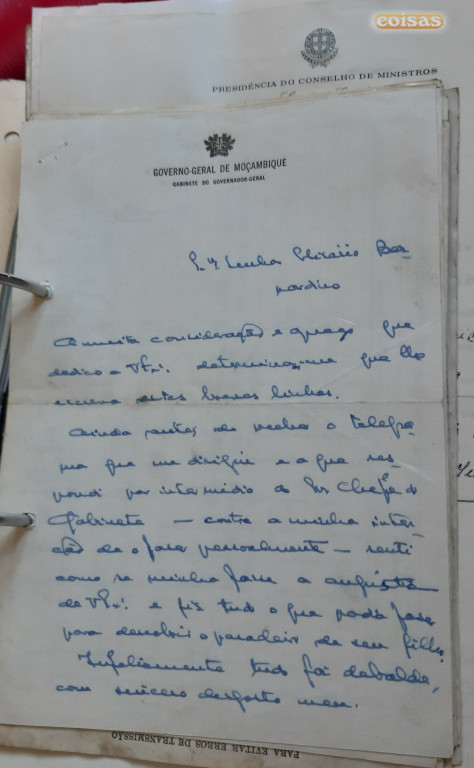 coisas
PRESIDÊNCIA DO CONSELHO DE MINISTROS
GOVERNO-GERAL DE MOÇAMBIQUE
GABINETE DO GOVERNADOR-GERAL
Senhor Ber-
nardino
A muita consideração e apreço que
dedico a V.Exª. determinou-me que lhe
escreva estas breves linhas.
Ainda antes de receber o telegra-
ma que me dirigiu e a que res-
pondi por intermédio do Chefe do
Gabinete — contra a minha inten-
ção de o fazer pessoalmente — senti
como se minha fosse a angústia
de V.Exª. e fiz tudo o que podia fazer
para descobrir o paradeiro de seu filho.
Infelizmente tudo foi debalde,
com sincero desgosto meu.
PARA EVITAR ERROS DE TRANSMISSÃO